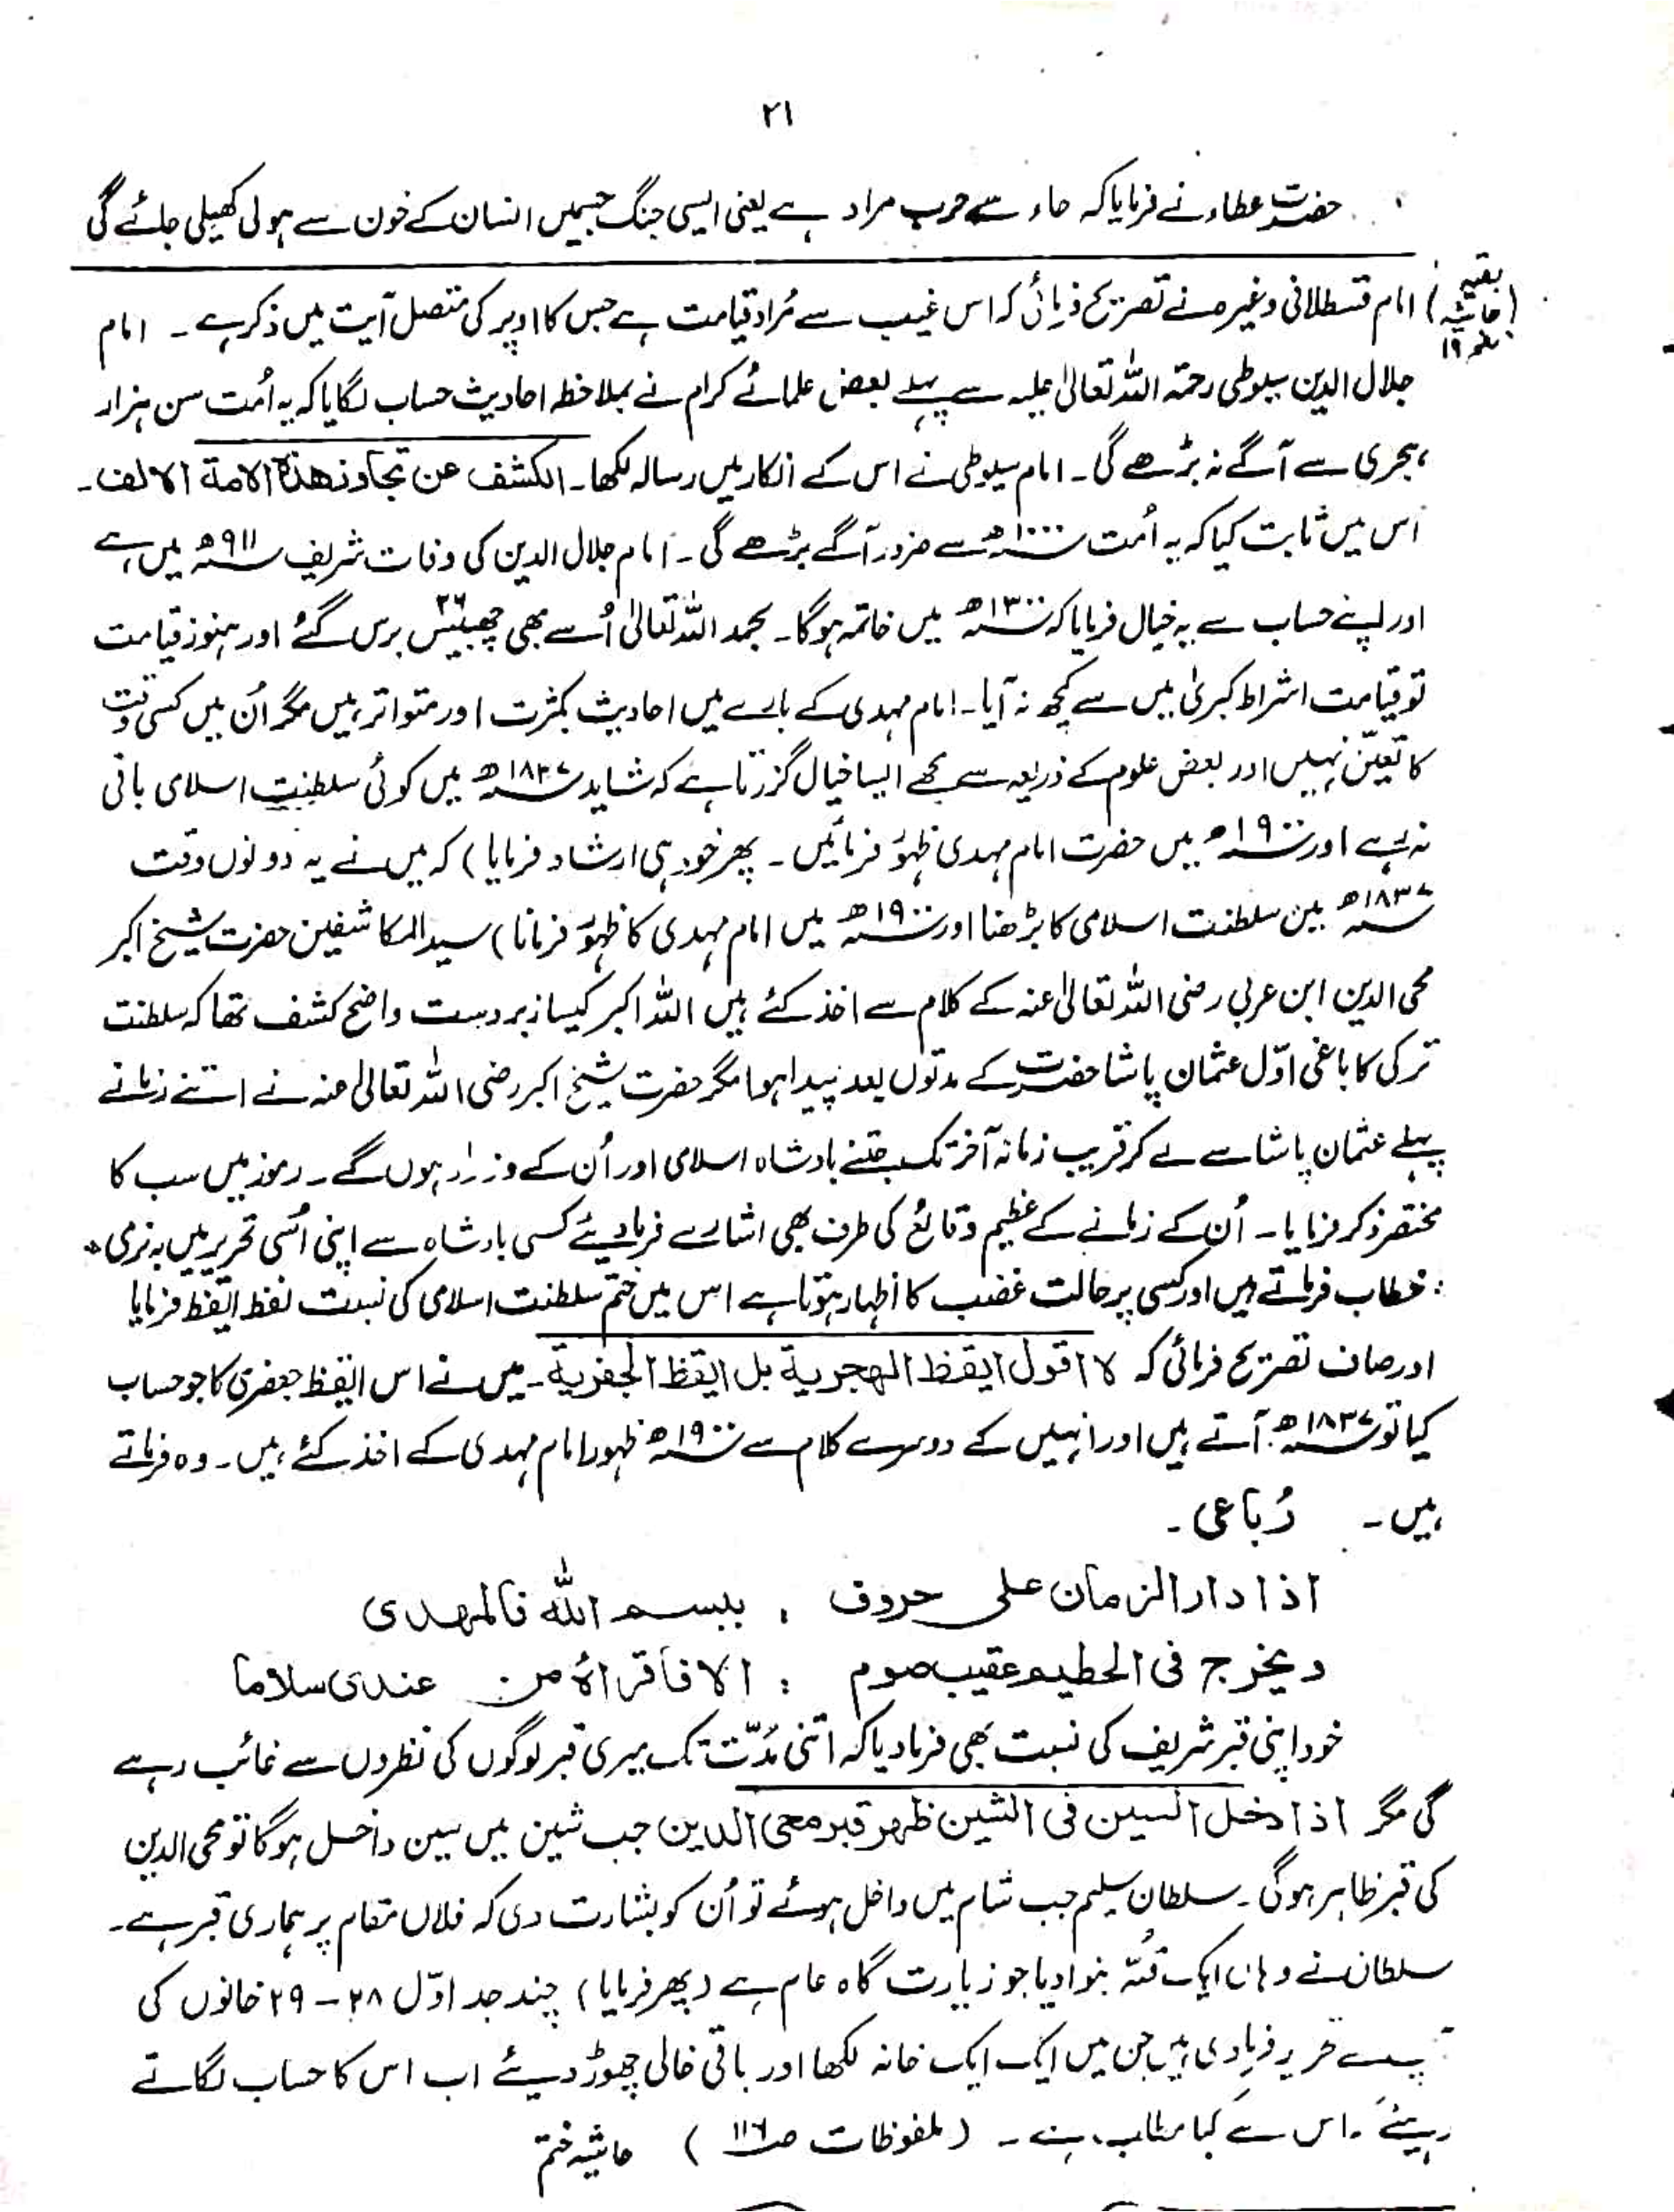 ۲۱
حضرت عطاء نے فرمایا کہ حاء سے حرب مراد ہے یعنی ایسی جنگ جسمیں انسان کے خون سے ہولی کھیلی جائے گی
(بقیہ حاشیہ نمبر ۱۹) امام قسطلانی وغیرہ نے تصریح فرمائی کہ اس غیب سے مُراد قیامت ہے جس کا اوپر کی متصل آیت میں ذکر ہے ۔ امام
جلال الدین سیوطی رحمتہ اللہ تعالیٰ علیہ سے پہلے بعض علمائے کرام نے بملاحظہ احادیث حساب لگایا کہ یہ اُمت سن ہزار
ہجری سے آگے نہ بڑھے گی ۔ امام سیوطی نے اس کے انکار میں رسالہ لکھا ۔ الکشف عن تجاوز ھذہ الامۃ الالف ۔
اس میں ثابت کیا کہ یہ اُمت ۱۰۰۰ھ سے ضرور آگے بڑھے گی ۔ امام جلال الدین کی وفات شریف ۹۱۱ھ میں ہے
اور اپنے حساب سے یہ خیال فرمایا کہ ۱۳۰۰ھ میں خاتمہ ہوگا ۔ بحمد اللہ تعالیٰ اُسے بھی چھبیس ۲۶ برس گئے اور ہنوز قیامت
تو قیامت اشراط کبریٰ میں سے کچھ نہ آیا ۔ امام مہدی کے بارے میں احادیث بکثرت اور متواتر ہیں مگر اُن میں کسی وقت
کا تعیّن نہیں اور بعض علوم کے ذریعہ سے مجھے ایسا خیال گزرتا ہے کہ شاید ۱۸۳۷ھ میں کوئی سلطنت اسلامی باقی
نہ رہے اور ۱۹۰۰ھ میں حضرت امام مہدی ظہور فرمائیں ۔ پھر خود ہی ارشاد فرمایا ) کہ میں نے یہ دونوں وقت
۱۸۳۷ھ میں سلطنت اسلامی کا بڑھنا اور ۱۹۰۰ھ میں امام مہدی کا ظہور فرمانا ) سید المکاشفین حضرت شیخ اکبر
محی الدین ابن عربی رضی اللہ تعالیٰ عنہ کے کلام سے اخذ کئے ہیں اللہ اکبر کیسا زبردست واضح کشف تھا کہ سلطنت
ترکی کا باغی اوّل عثمان پاشا حضرت کے مدتوں بعد پیدا ہوا مگر حضرت شیخ اکبر رضی اللہ تعالیٰ عنہ نے اتنے زمانے
پہلے عثمان پاشا سے لے کر قریب زمانہ آخر تک جتنے بادشاہ اسلامی اور اُن کے وزراء ہوں گے ۔ رموز میں سب کا
مختصر ذکر فرمایا ۔ اُن کے زمانے کے عظیم وقائع کی طرف بھی اشارے فرما دیئے کسی بادشاہ سے اپنی اُسی تحریر میں بہ نرمی
خطاب فرماتے ہیں اور کسی پر حالت غضب کا اظہار ہوتا ہے اس میں ختم سلطنت اسلامی کی نسبت لفظ ایقظ فرمایا
اور صاف تصریح فرمائی کہ لا اقول ایقظ الھجریۃ بل ایقظ الجفریۃ ۔ میں نے اس ایقظ جعفری کا جو حساب
کیا تو ۱۸۳۷ھ آتے ہیں اور انہیں کے دوسرے کلام سے ۱۹۰۰ھ ظہور امام مہدی کے اخذ کئے ہیں ۔ وہ فرماتے
ہیں ۔ رُباعی ۔
اذا دار الزمان علی حروف ، ببسم اللہ فالمھدی
ویخرج فی الحطیم عقیب صوم ؛ الا فاقراہ من عندی سلاما
خود اپنی قبر شریف کی نسبت بھی فرما دیا کہ اتنی مُدّت تک میری قبر لوگوں کی نظروں سے غائب رہے
گی مگر اذا دخل السین فی الشین ظھر قبر محی الدین جب شین میں سین داخل ہوگا تو محی الدین
کی قبر ظاہر ہوگی ۔ سلطان سلیم جب شام میں داخل ہوئے تو اُن کو بشارت دی کہ فلاں مقام پر ہماری قبر ہے ۔
سلطان نے وہاں ایک قُبّہ بنوا دیا جو زیارت گاہ عام ہے ( پھر فرمایا ) چند جداوّل ۲۸ – ۲۹ خانوں کی
تحریر فرما دی ہیں جن میں ایک ایک خانہ لکھا اور باقی خالی چھوڑ دیئے اب اس کا حساب لگاتے
رہیئے ۔ اس سے کیا مطلب ہے ۔ ( ملفوظات ص ۱۱۶ ) حاشیہ ختم